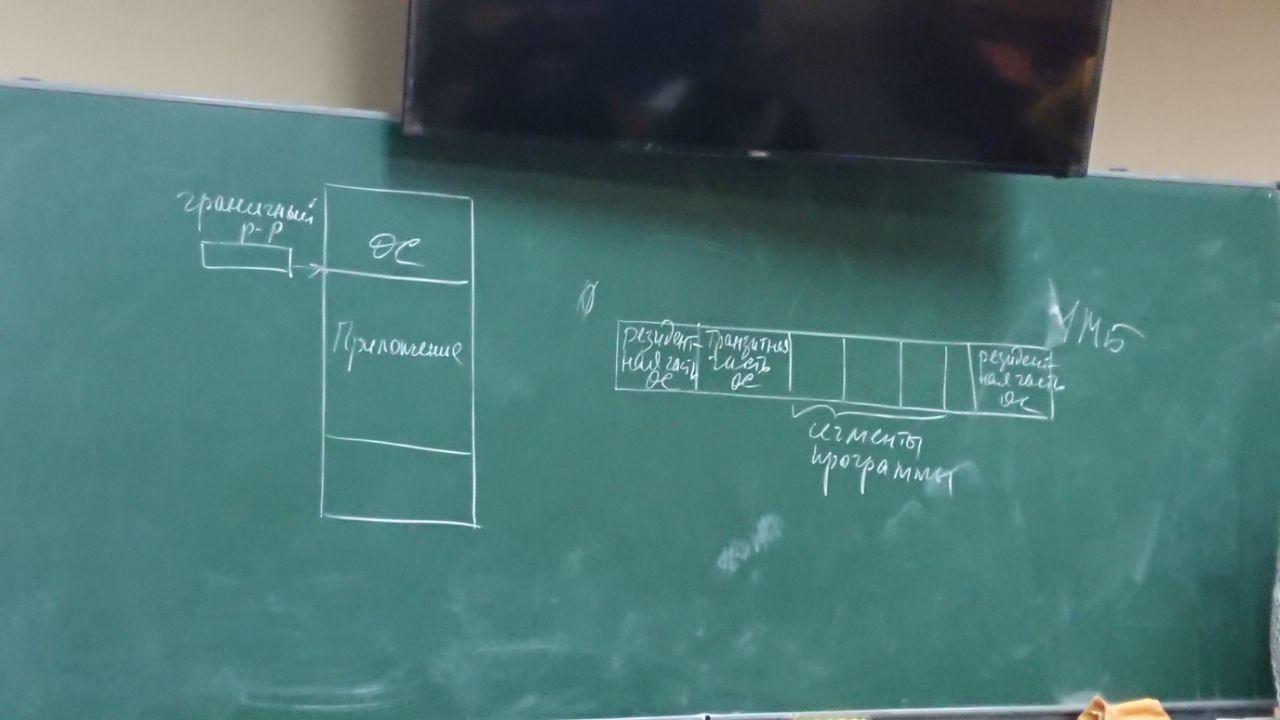 граничный
р-р
ОС
Приложение
0
1МБ
резидент-
ная часть
ОС
транзитная
часть
ОС
резидент-
ная часть
ОС
сегменты
программы